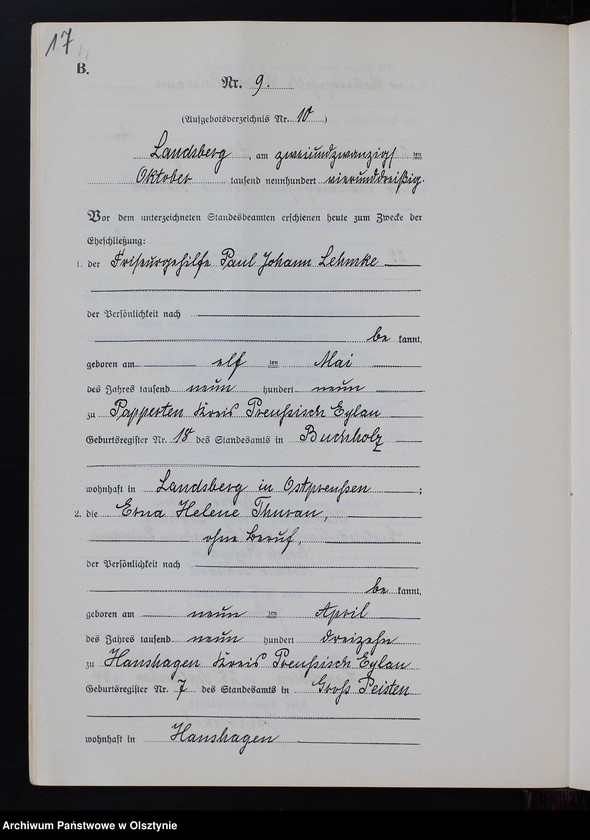 17
B.
Nr. 9.
(Aufgebotsverzeichnis Nr. 10)
Landsberg, am zweiundzwanzigsten
Oktober tausend neunhundert vierunddreißig.
Vor dem unterzeichneten Standesbeamten erschienen heute zum Zwecke der
Eheschließung:
1. der Friseurgehilfe Paul Johann Lehmke
der Persönlichkeit nach
be kannt,
geboren am elf ten Mai
des Jahres tausend neun hundert neun
zu Papperten Kreis Preußisch Eylau
Geburtsregister Nr. 18 des Standesamts in Buchholz
wohnhaft in Landsberg in Ostpreußen;
2. die Erna Helene Thurau,
ohne Beruf,
der Persönlichkeit nach
be kannt,
geboren am neun ten April
des Jahres tausend neun hundert dreizehn
zu Hanshagen Kreis Preußisch Eylau
Geburtsregister Nr. 7 des Standesamts in Groß Peisten
wohnhaft in Hanshagen
Archiwum Państwowe w Olsztynie